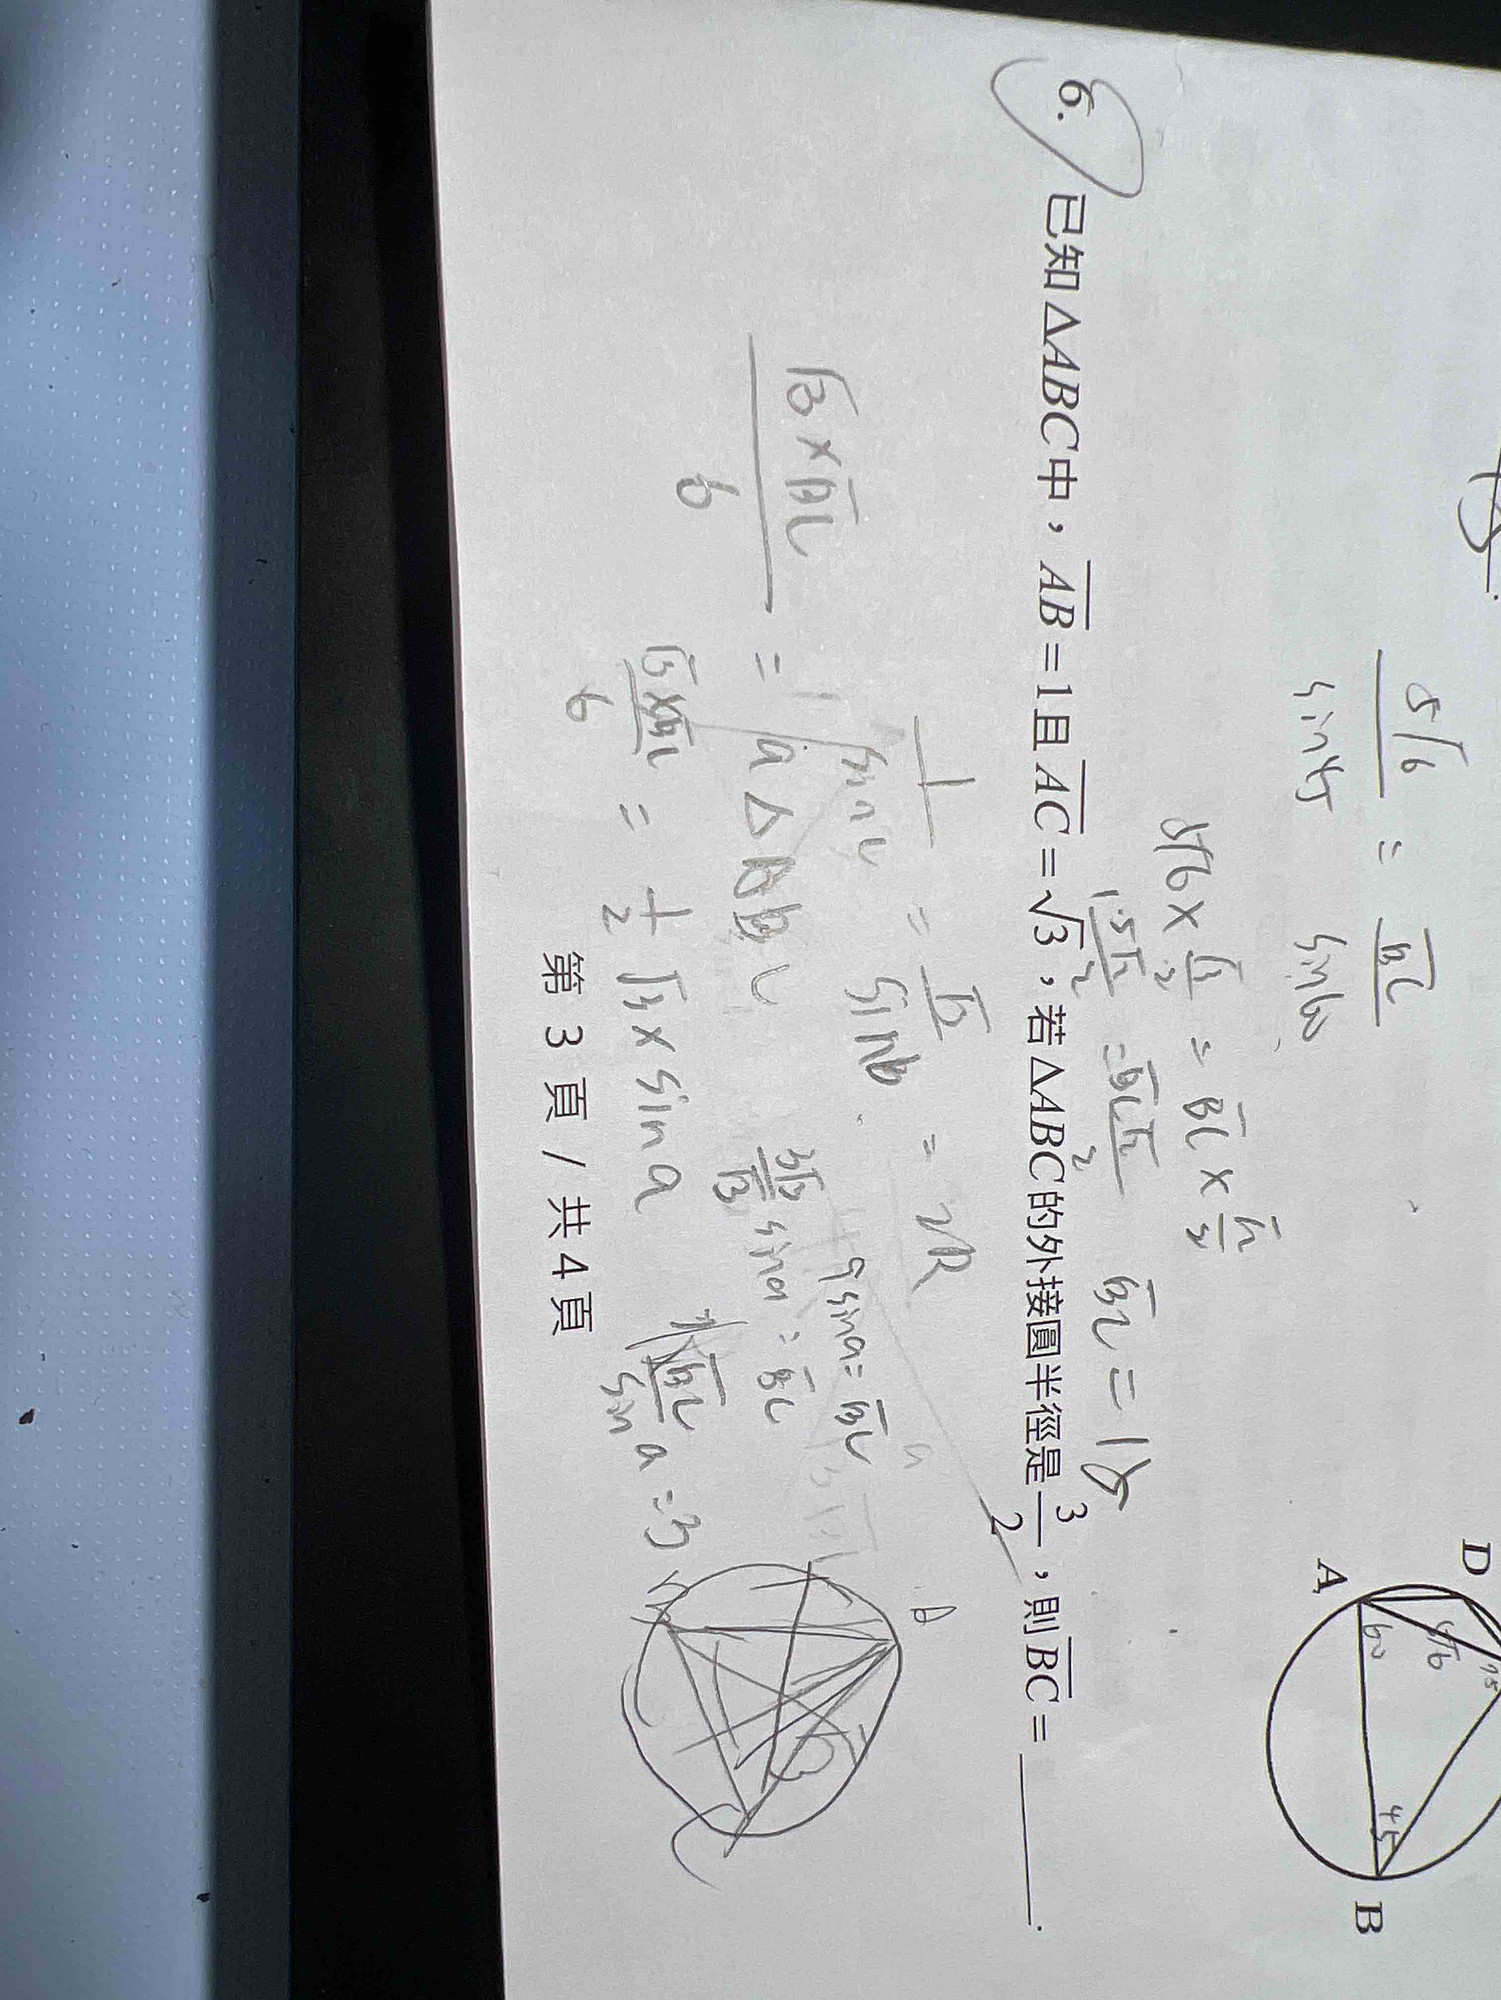 5√6/sin45 = BC/sin60
5√6 × √3/2 = BC × √2/2
BC = 15
D
A
B
60
5√6
75
45
6. 已知△ABC中，AB=1且AC=√3，若△ABC的外接圓半徑是3/2，則BC=______.
= 2R
√3×BC/6 = a△ABC
9sina=BC
sina = BC
√3×BC/6 = 1/2 √3×sina
BC/sina=3
第 3 頁 / 共 4 頁